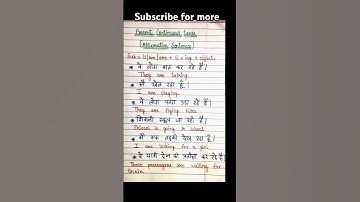 Subscribe for more
Present Continuous Tense
Affirmative Sentence
Sub + is/am/are + V₁ + ing + object.
* वे लोग बात कर रहे हैं।
They are talking.
* मैं खेल रहा हूँ।
I am playing.
* वे लोग पतंग उड़ा रहे हैं।
They are flying kite.
* शिवानी स्कूल जा रही है।
is going to school.
* मैं एक लड़की देख रहा हूँ।
I am looking for a girl.
* ये यात्री ट्रेन की प्रतीक्षा कर रहे हैं।
These passengers are waiting for
train.